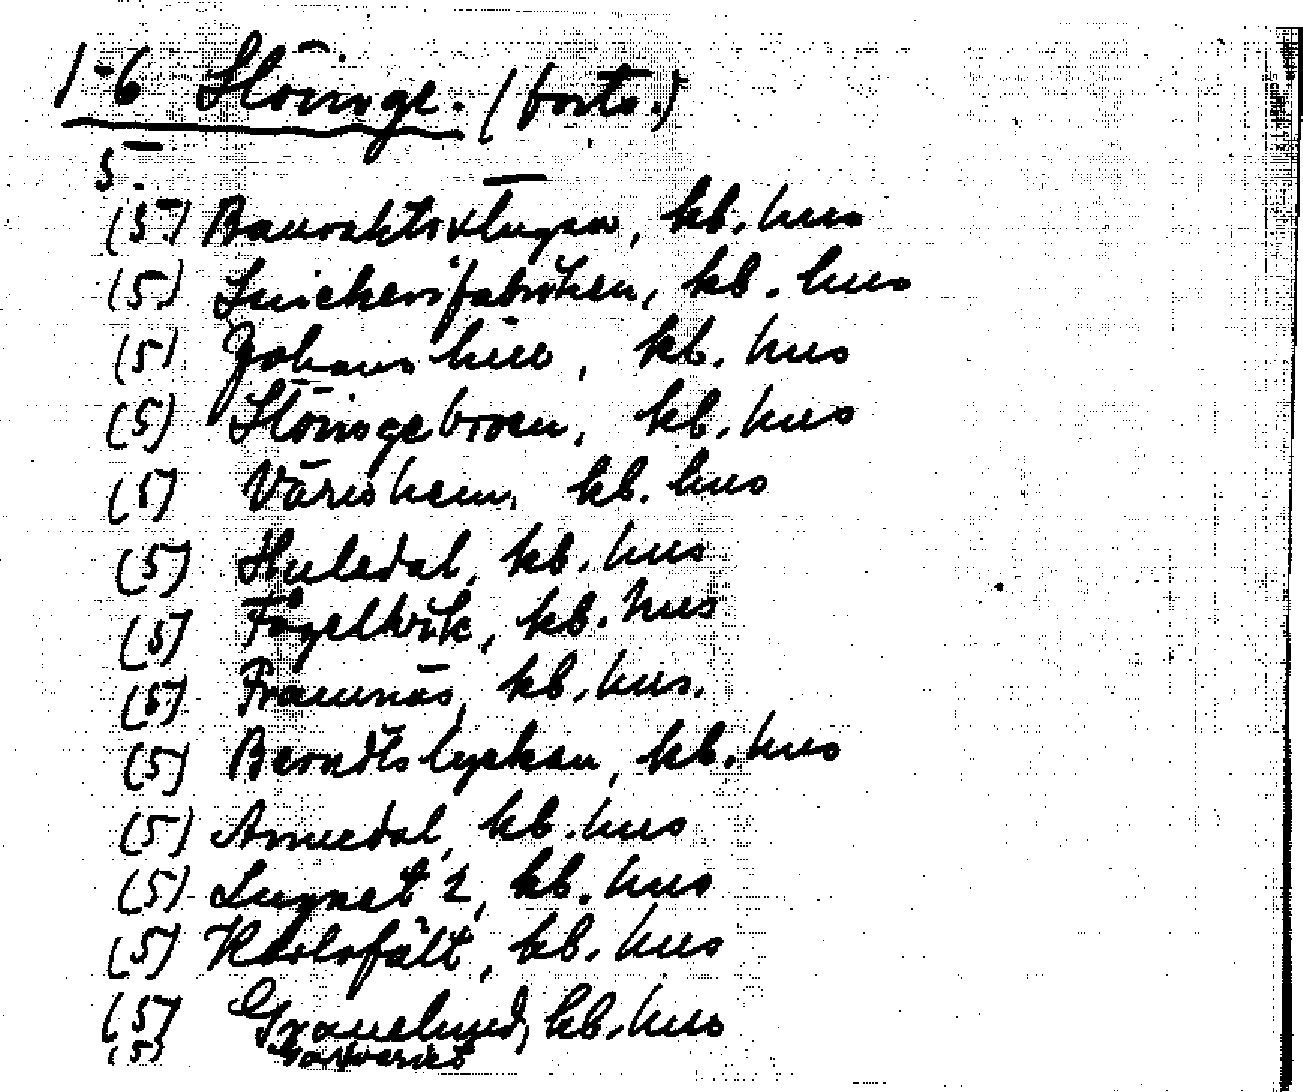 1-6 Slöinge. (forts.)
5.
(5) Banvaktsstugan, kb. hus
(5) Snickerifabriken, kb. hus
(5) Johanshill, kb. hus
(5) Slöingebroen, kb. hus
(5) Vårishem, kb. hus
(5) Huledal, kb. hus
(5) Fågelvik, kb. hus
(5) Framnäs, kb. hus.
(5) Berndtslyckan, kb. hus
(5) Annedal, kb. hus
(5) Lugnet 1, kb. hus
(5) Karlsfält, kb. hus
(5) Granelund, kb. hus
(5) Garveriet